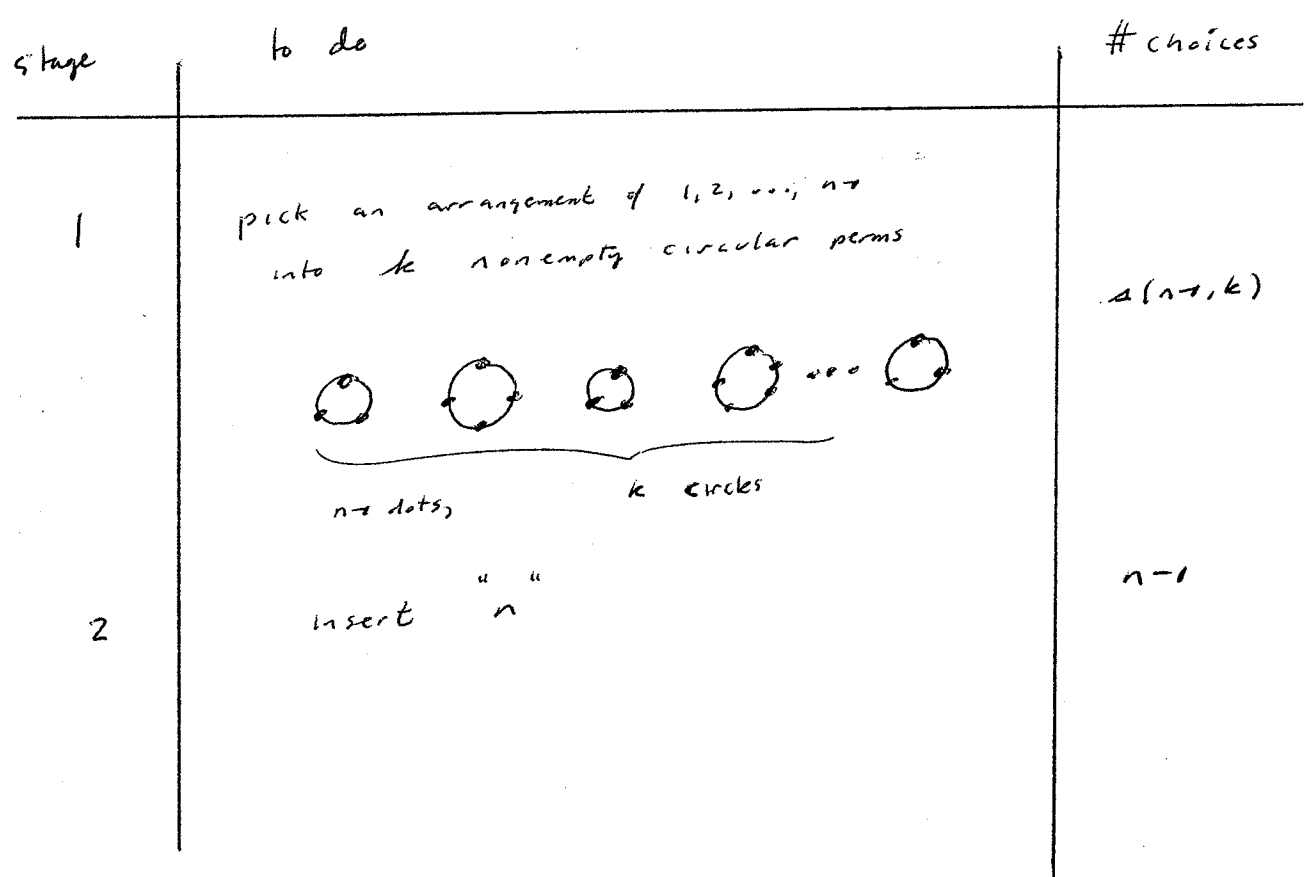 stage to do # choices
1 pick an arrangement of 1, 2, ..., n-1
into k nonempty circular perms
s(n-1, k)
...
n-1 dots, k circles
2 insert "n" n-1